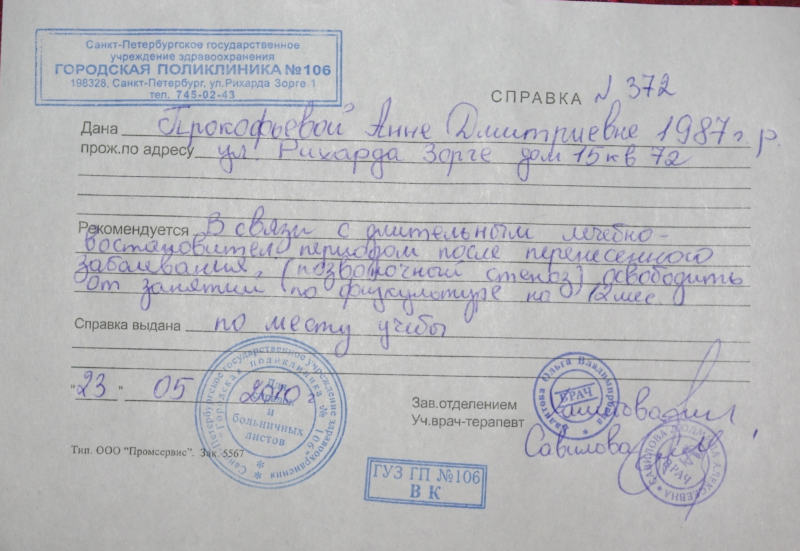 Санкт-Петербургское государственное
учреждение здравоохранения
ГОРОДСКАЯ ПОЛИКЛИНИКА №106
198328, Санкт-Петербург, ул.Рихарда Зорге 1
тел. 745-02-43
СПРАВКА № 372
Дана Прокофьевой Анне Дмитриевне 1987 г.р.
прож.по адресу ул. Рихарда Зорге дом 15 кв 72
Рекомендуется В связи с длительным лечебно-
востановител периодом после перенесенного
забалевания, (позвоночный стеноз) освободить
от занятий по физкультуре на 12 мес.
Справка выдана по месту учебы
"23" 05 2010 г
Зав.отделением
Уч.врач-терапевт Савилова
Тип. ООО "Промсервис". Зак. 5567
Санкт-Петербургское государственное учреждение здравоохранения
Городская поликлиника 106
Для
и
больничных
листов
Ольга Владимировна
ВРАЧ
САВИЛОВА ЛЮДМИЛА АЛЕКСЕЕВНА
ВРАЧ
ГУЗ ГП №106
ВК